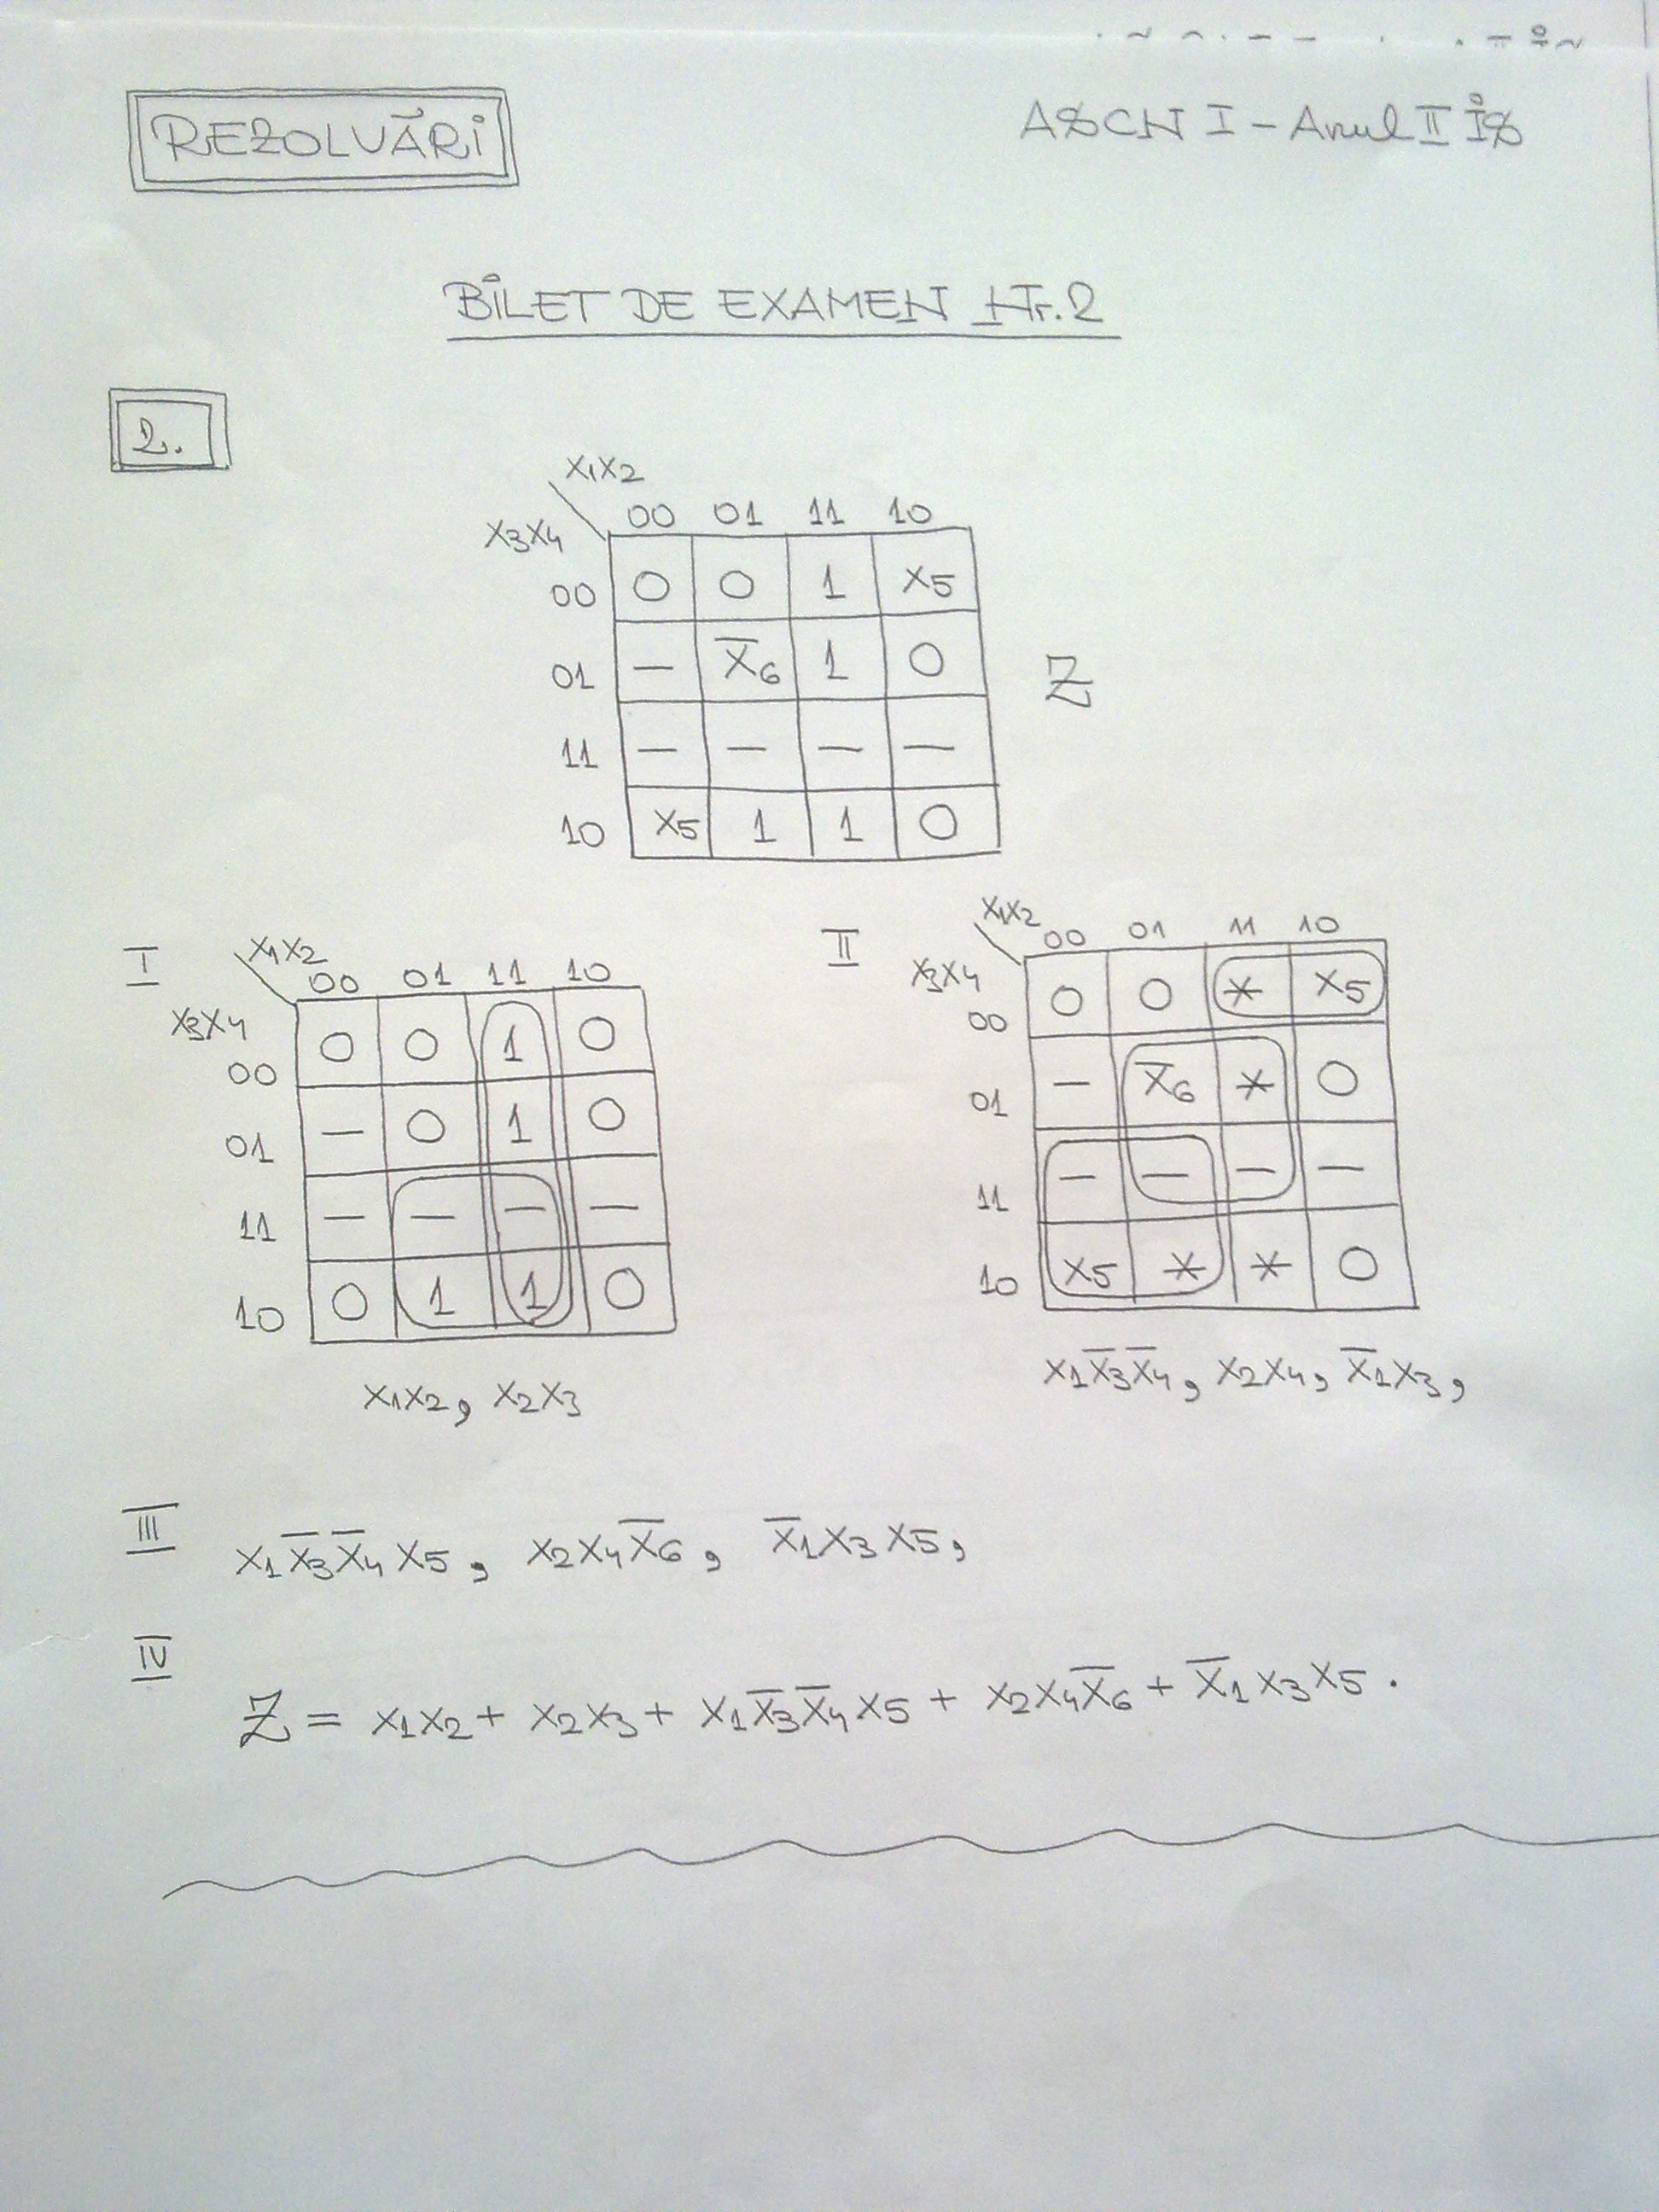 REZOLVĂRI
ASCN I - Anul II IS
BILET DE EXAMEN Nr. 2
2.
x1x2
x3x4
00 01 11 10
00 0 0 1 x5
01 — x̅6 1 0
11 — — — —
10 x5 1 1 0
Z
I
x1x2
x3x4
00 01 11 10
00 0 0 1 0
01 — 0 1 0
11 — — — —
10 0 1 1 0
x1x2, x2x3
II
x1x2
x3x4
00 01 11 10
00 0 0 * x5
01 — x̅6 * 0
11 — — — —
10 x5 * * 0
x1x̅3x̅4, x2x4, x̅1x3,
III x1x̅3x̅4x5, x2x4x̅6, x̅1x3x5,
IV
Z = x1x2 + x2x3 + x1x̅3x̅4x5 + x2x4x̅6 + x̅1x3x5.